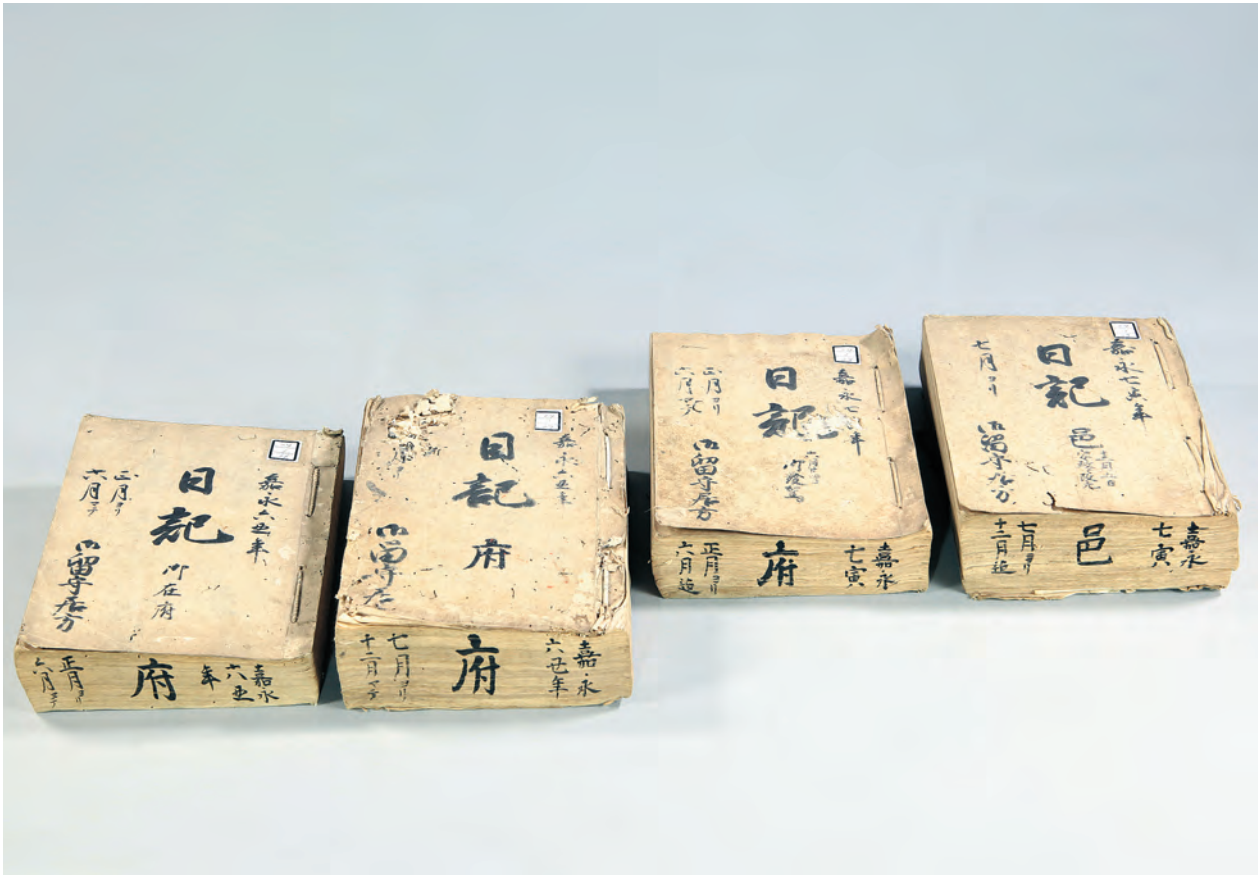 嘉永六丑年
日記
御在府
正月ヨリ
六月マテ
御留守居方
嘉永
六丑
年
府
正月ヨリ
六月マテ
嘉永六丑年
日記
府
御留守居
嘉永
六丑年
府
七月ヨリ
十二月マテ
嘉永七
年
日記
正月ヨリ
六月迄
御留守居方
嘉永
七寅
府
正月ヨリ
六月迄
嘉永七寅年
日記
邑
七月ヨリ
御留守居方
嘉永
七寅
邑
七月ヨリ
十二月迄